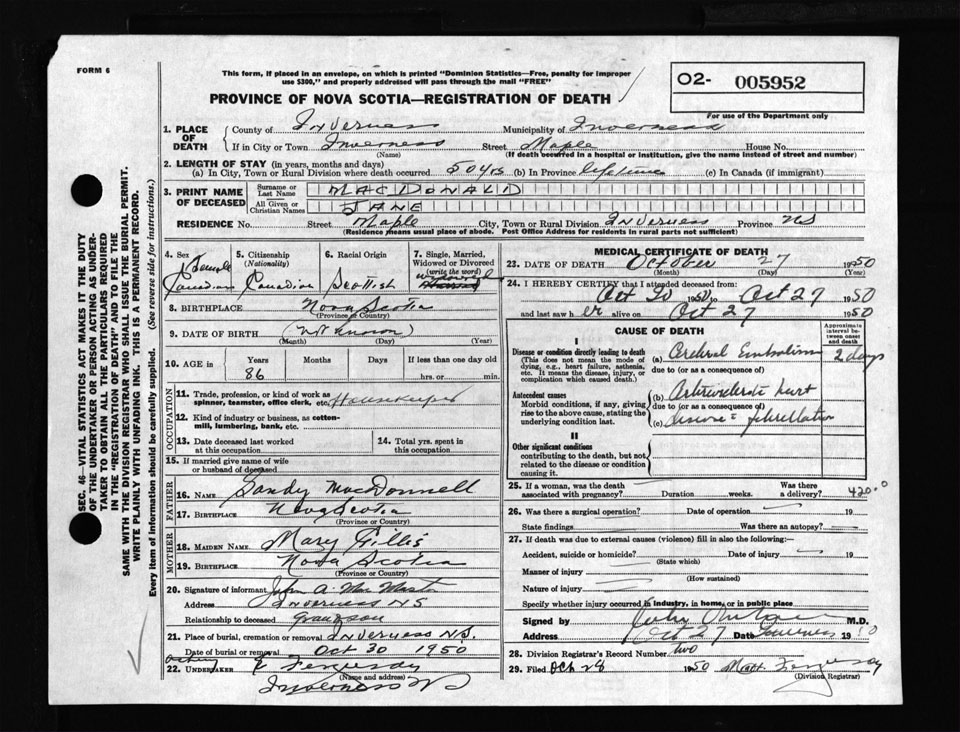 FORM 6
This form, if placed in an envelope, on which is printed "Dominion Statistics—Free, penalty for improper
use $300," and properly addressed will pass through the mail "FREE"
O2- 005952
For use of the Department only
PROVINCE OF NOVA SCOTIA—REGISTRATION OF DEATH
SEC. 46—VITAL STATISTICS ACT MAKES IT THE DUTY
OF THE UNDERTAKER OR PERSON ACTING AS UNDER-
TAKER TO OBTAIN ALL THE PARTICULARS REQUIRED
IN THE "REGISTRATION OF DEATH" AND TO FILE THE
SAME WITH THE DIVISION REGISTRAR WHO SHALL ISSUE THE BURIAL PERMIT.
WRITE PLAINLY WITH UNFADING INK. THIS IS A PERMANENT RECORD.
Every item of information should be carefully supplied. (See reverse side for instructions.)
1. PLACE OF DEATH County of Inverness Municipality of Inverness
If in City or Town Inverness Street Maple House No.
(Name) (If death occurred in a hospital or institution, give the name instead of street and number)
2. LENGTH OF STAY (in years, months and days)
(a) In City, Town or Rural Division where death occurred 50 yrs (b) In Province lifetime (c) In Canada (if immigrant)
3. PRINT NAME OF DECEASED Surname or Last Name MACDONALD
All Given or Christian Names JANE
RESIDENCE No. Street Maple City, Town or Rural Division Inverness Province NS
(Residence means usual place of abode. Post Office Address for residents in rural parts not sufficient)
4. Sex Female Canadian
5. Citizenship (Nationality) Canadian
6. Racial Origin Scottish
7. Single, Married, Widowed or Divorced (write the word)
8. BIRTHPLACE Nova Scotia
(Province or Country)
9. DATE OF BIRTH (not known)
(Month) (Day) (Year)
10. AGE in Years Months Days If less than one day old
86 hrs. or min.
OCCUPATION
11. Trade, profession, or kind of work as spinner, teamster, office clerk, etc. Housekeeper
12. Kind of industry or business, as cotton-mill, lumbering, bank, etc.
13. Date deceased last worked at this occupation
14. Total yrs. spent in this occupation
15. If married give name of wife or husband of deceased
FATHER
16. NAME Sandy MacDonnell
17. BIRTHPLACE Nova Scotia
(Province or Country)
MOTHER
18. MAIDEN NAME Mary Gillis
19. BIRTHPLACE Nova Scotia
(Province or Country)
20. Signature of informant John A. Mac Master
Address Inverness N S
Relationship to deceased Grandson
21. Place of burial, cremation or removal Inverness N.S.
Date of burial or removal Oct 30 1950
22. UNDERTAKER Ferguson
(Name and address)
Inverness NS
MEDICAL CERTIFICATE OF DEATH
23. DATE OF DEATH October 27 1950
(Month) (Day) (Year)
24. I HEREBY CERTIFY that I attended deceased from:
Oct 20 1950 to Oct 27 1950
and last saw h er alive on Oct 27 1950
CAUSE OF DEATH
Approximate interval between onset and death
I
Disease or condition directly leading to death (a) Cerebral Embolism 2 days
(This does not mean the mode of dying, e.g., heart failure, asthenia, etc. It means the disease, injury, or complication which caused death.)
due to (or as a consequence of)
Antecedent causes (b) heart
Morbid conditions, if any, giving rise to the above cause, stating the underlying condition last.
due to (or as a consequence of)
(c) disease fibrillation
II
Other significant conditions
contributing to the death, but not related to the disease or condition causing it.
25. If a woman, was the death associated with pregnancy? Duration weeks. Was there a delivery?
420.0
26. Was there a surgical operation? Date of operation 19
State findings Was there an autopsy?
27. If death was due to external causes (violence) fill in also the following:
Accident, suicide or homicide? Date of injury 19
(State which)
Manner of injury
(How sustained)
Nature of injury
Specify whether injury occurred in industry, in home, or in public place
Signed by M.D.
Address Oct 27 Date Inverness 1950
28. Division Registrar's Record Number two
29. Filed Oct 28 1950 Ferguson
(Division Registrar)